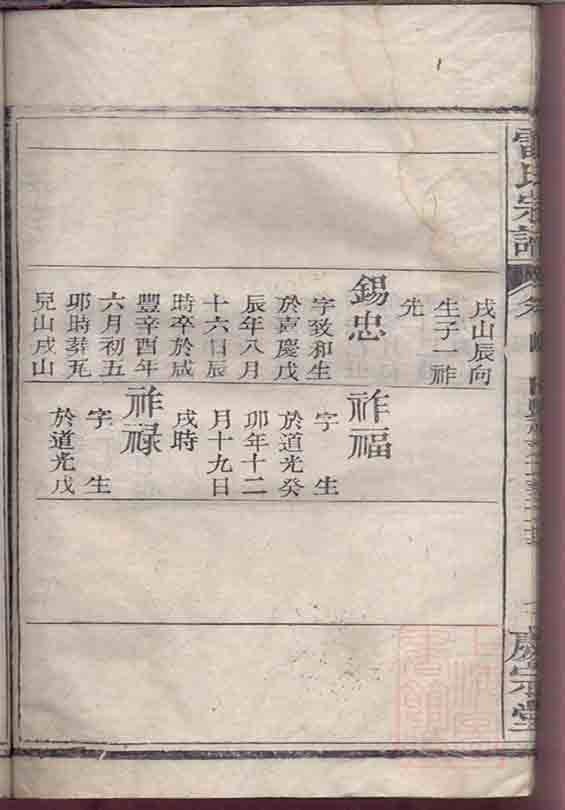 雷氏宗譜
戌山辰向
生子一祚
先
錫忠
字致和生
於嘉慶戊
辰年八月
十六日辰
時卒於咸
豐辛酉年
六月初五
卯時葬瓦
兒山戌山
祚福
字　生
於道光癸
卯年十二
月十九日
戌時
祚禄
字　生
於道光戊
慶宗堂